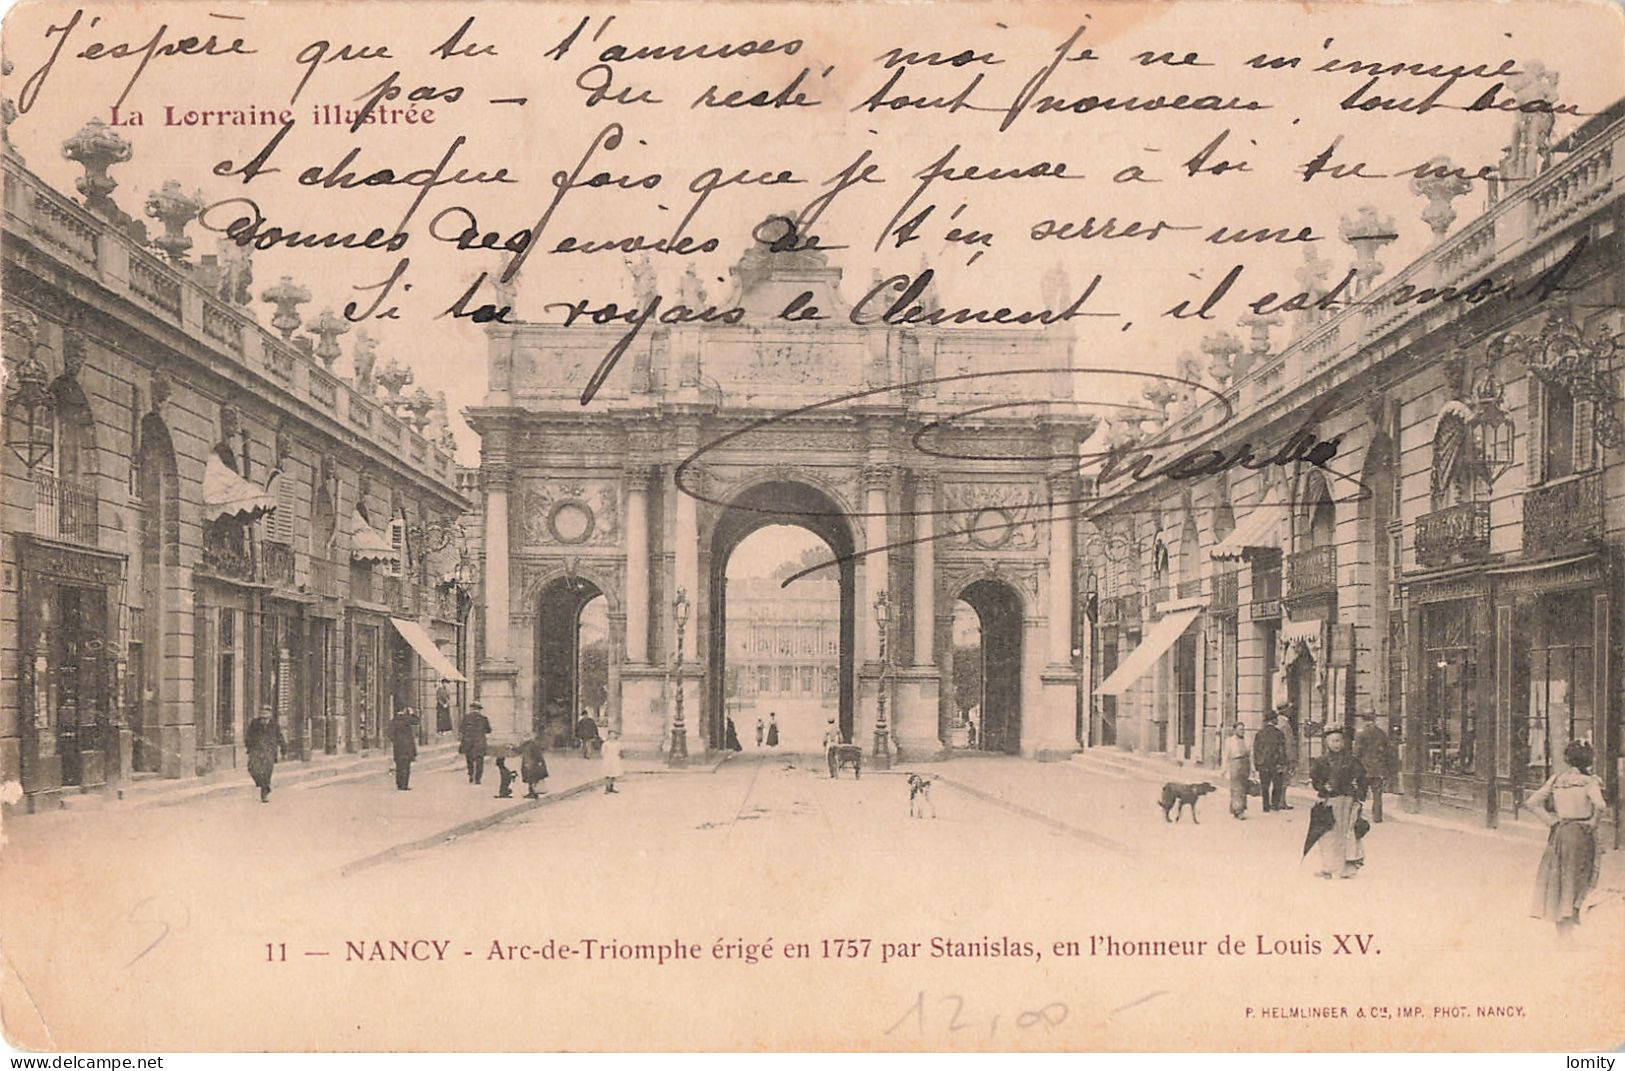 J'espère que tu t'amuses, moi je ne m'ennuie
pas — Du resté tout nouveau, tout beau
La Lorraine illustrée
et chaque fois que je pense à toi tu me
donnes des envies de t'en serrer une —
Si tu voyais le Clément, il est mort
Charles
11 — NANCY - Arc-de-Triomphe érigé en 1757 par Stanislas, en l'honneur de Louis XV.
12,00 —
P. HELMLINGER & Cie, IMP. PHOT. NANCY.
lomity